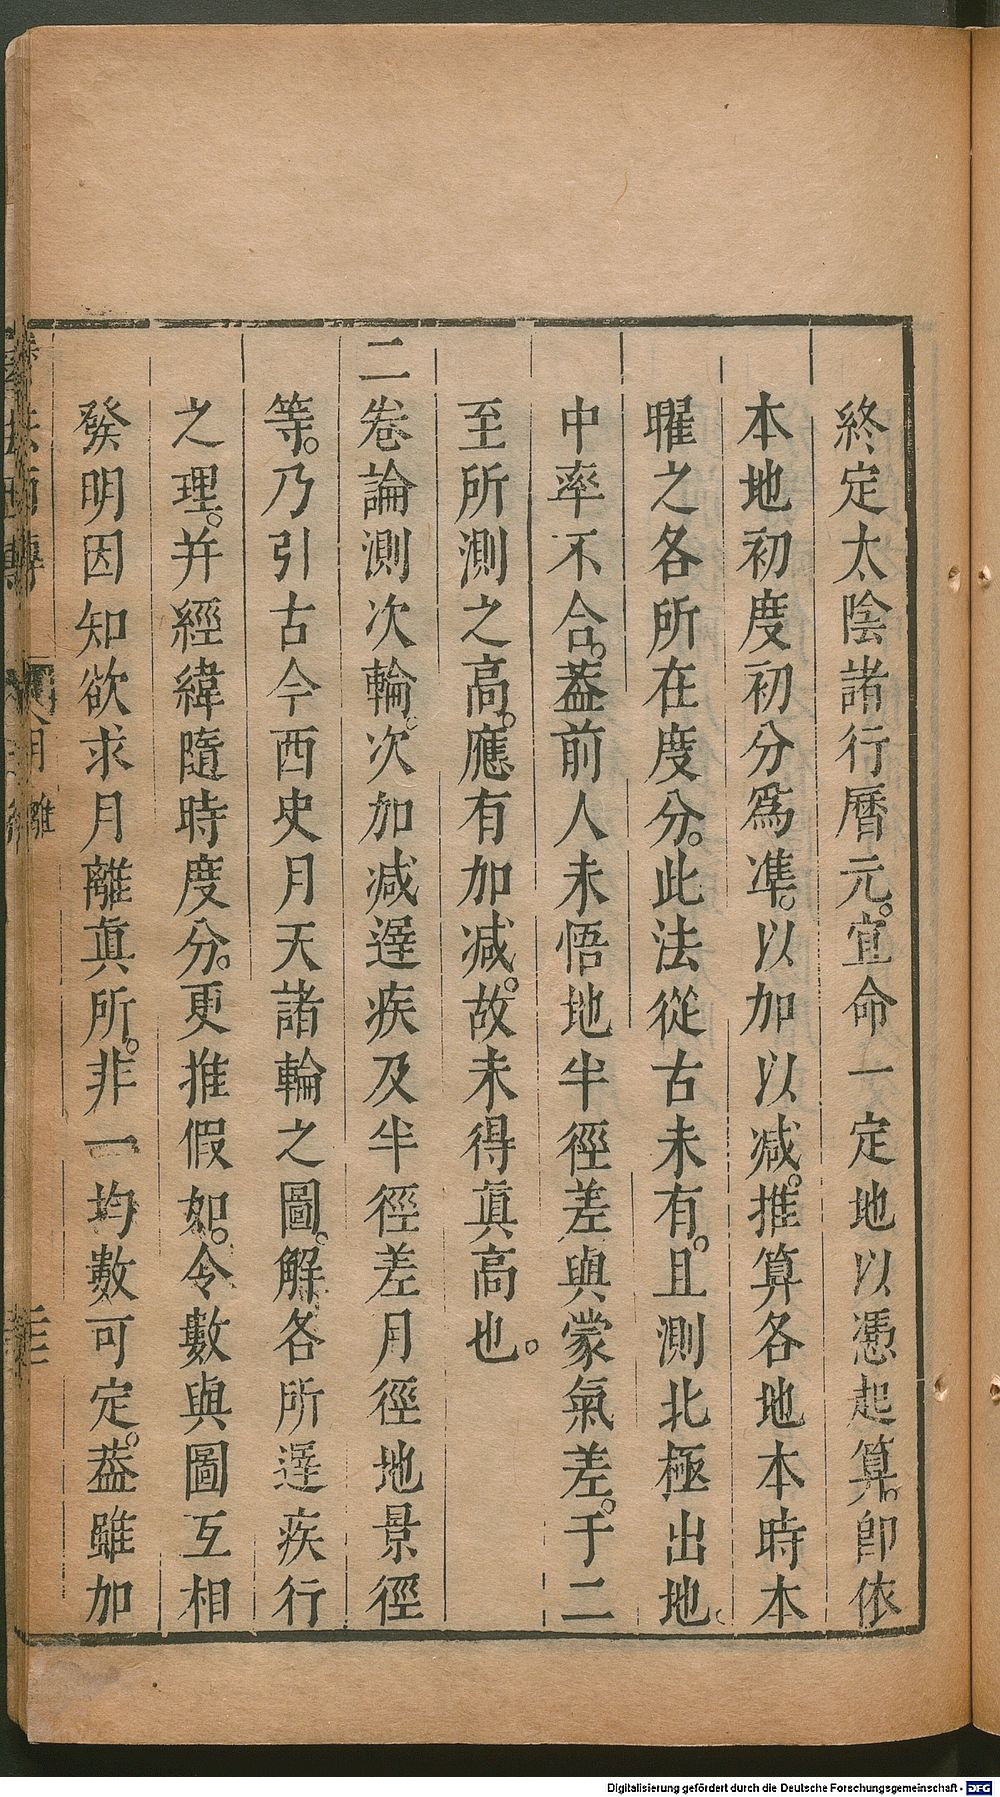 終定太陰諸行曆元。宜命一定地以憑起算。卽依
本地初度初分爲準。以加以减。推算各地本時本
曜之各所在度分。此法從古未有。且測北極出地。
中率不合。葢前人未悟地半徑差與蒙氣差。于二
至所測之高。應有加减。故未得眞高也。
二卷論測次輪。次加减遲疾及半徑差月徑地景徑
等。乃引古今西史月天諸輪之圖。解各所遲疾行
之理。幷經緯隨時度分。更推假如。令數與圖互相
發明因知欲求月離眞所。非一均數可定。葢雖加
月離
Digitalisierung gefördert durch die Deutsche Forschungsgemeinschaft - DFG